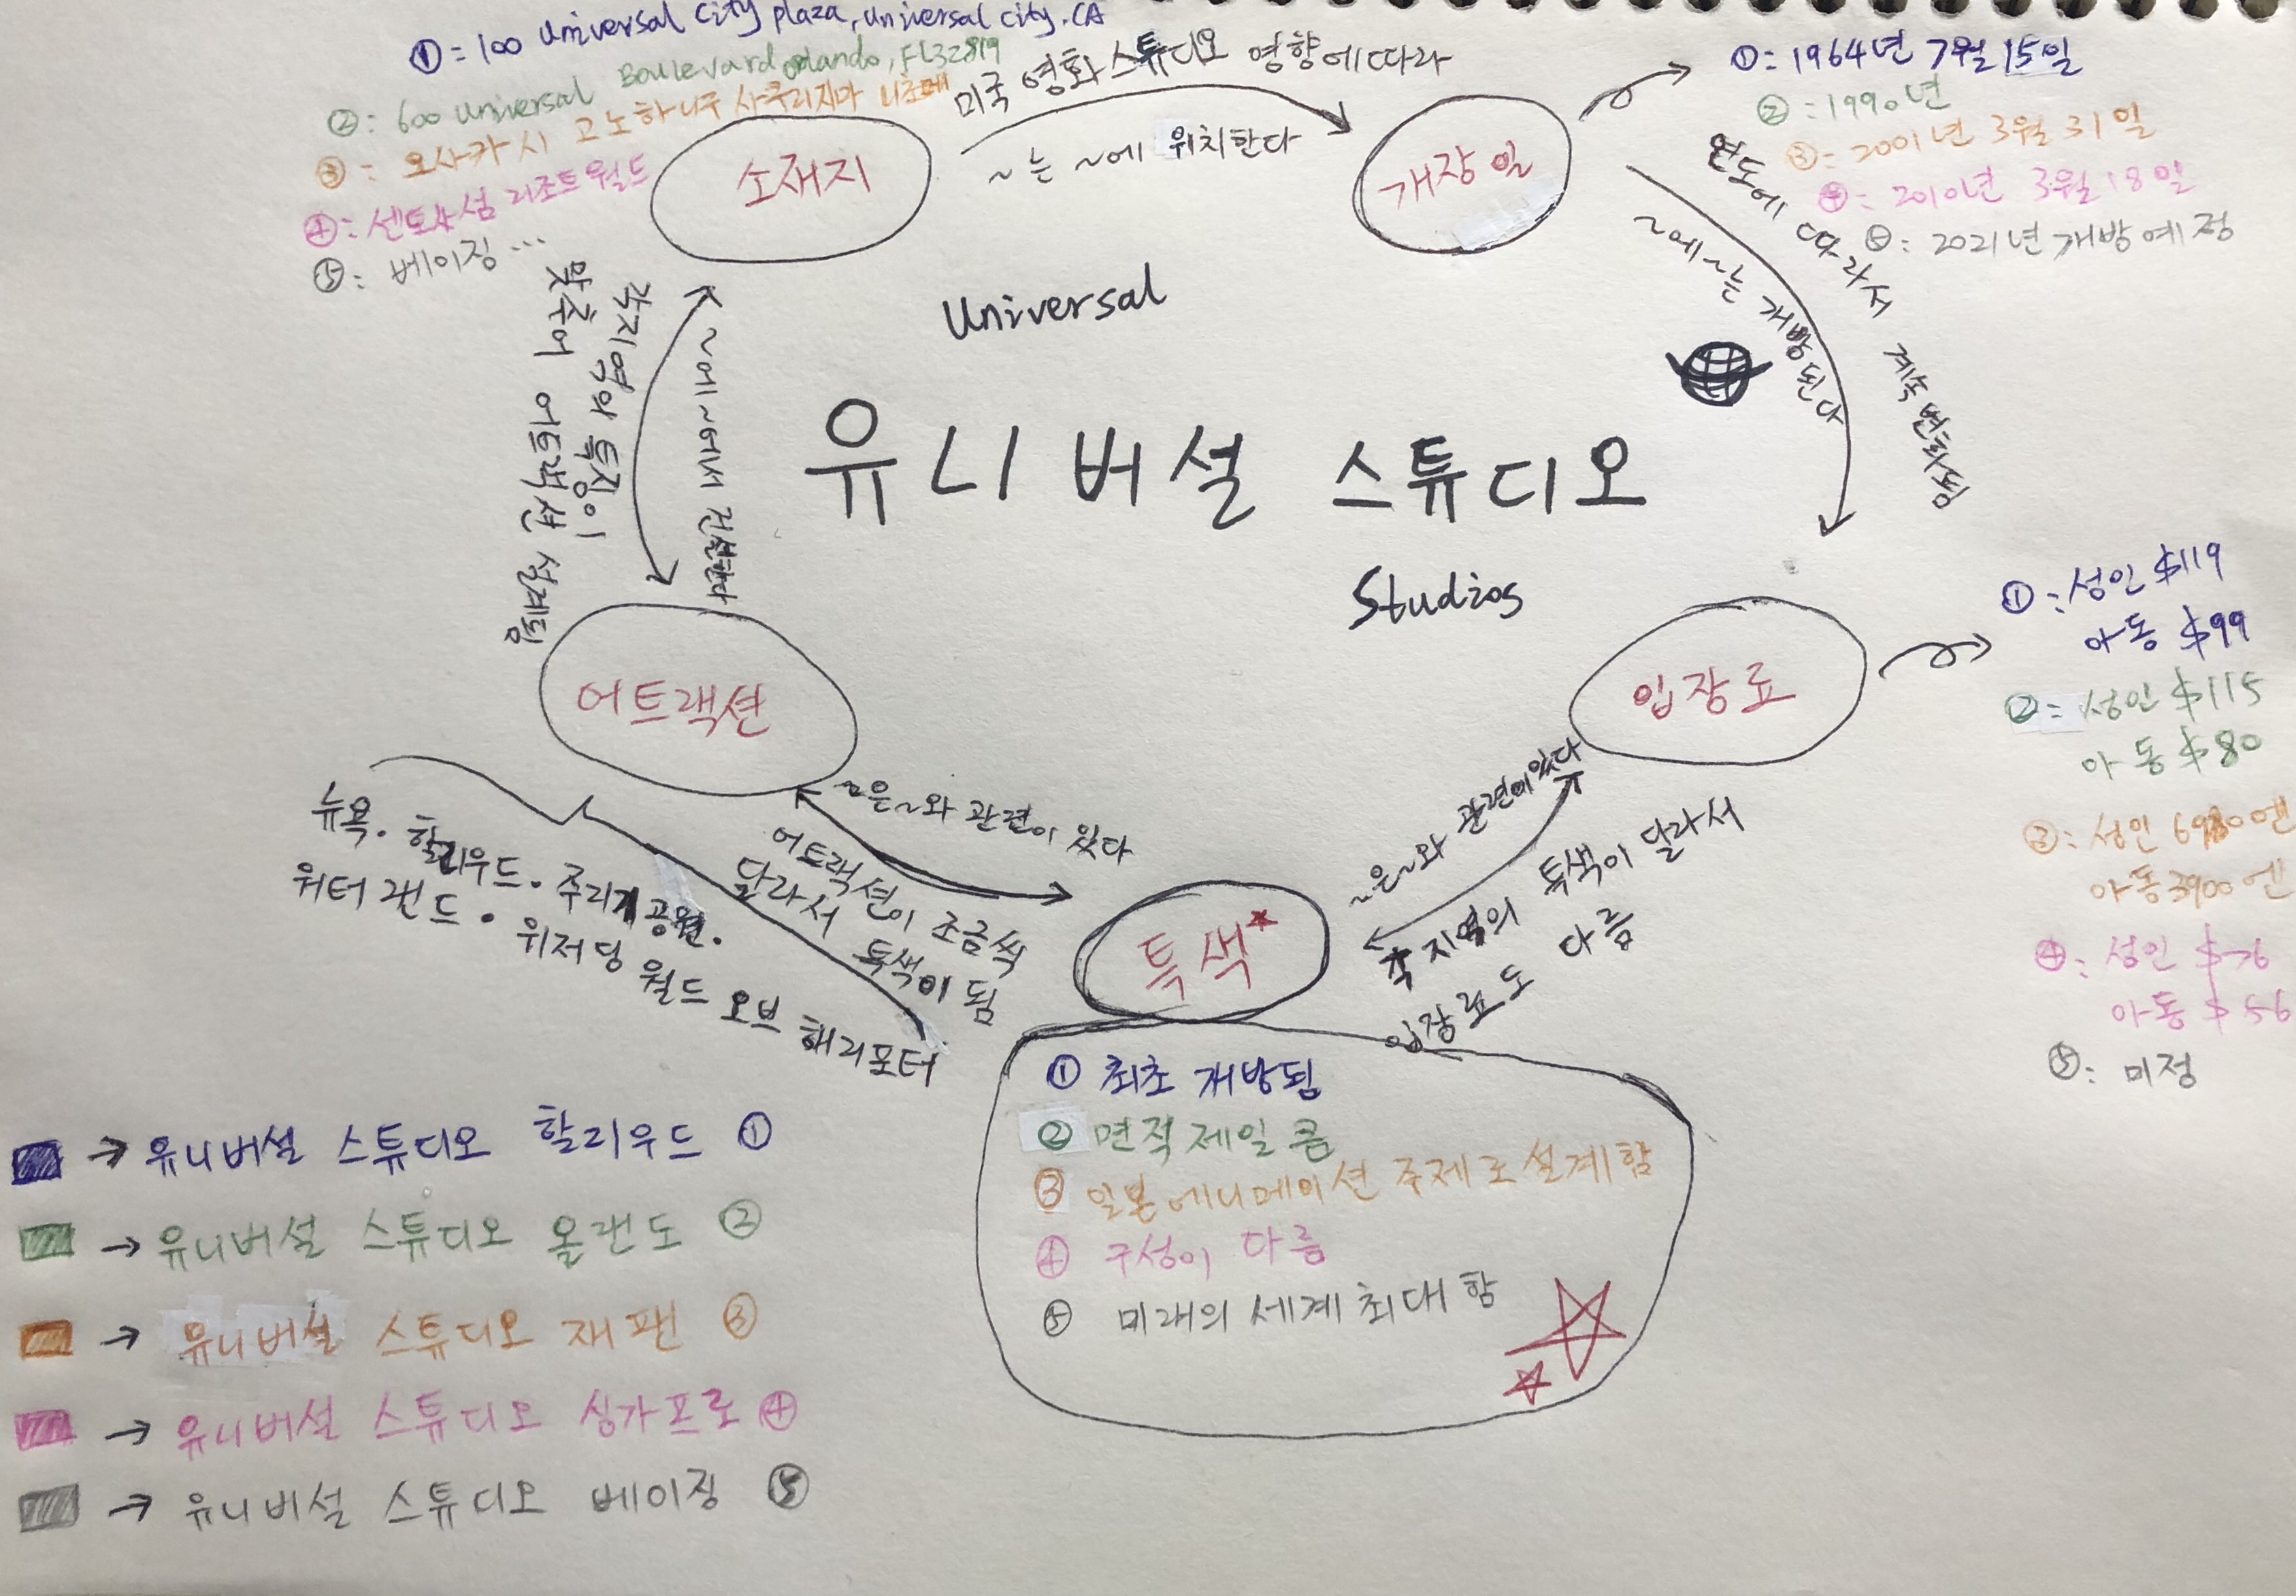 ①=100 Universal City plaza, Universal city, CA
②: 600 Universal Boulevard Orlando, FL32819
③: 오사카시 고노하나구 사쿠라지마 니초메
④: 센토사섬 리조트월드
⑤: 베이징 ...
소재지
미국 영화스튜디오 영향에따라
~는 ~에 위치한다
개장일
①: 1964년 7월 15일
②: 1990년
③: 2001년 3월 31일
④: 2010년 3월 18일
⑤: 2021년 개방 예정
연도에 따라서 계속 변화됨
~에~는 개방된다
각지역의 특징이
맞추어 어트랙션 설계됨
~에~에서 건설한다
Universal
유니버설 스튜디오
Studios
어트랙션
입장료
①: 성인 $119
아동 $99
②: 성인 $115
아동 $80
③: 성인 6980엔
아동3900엔
④: 성인 $76
아동 $56
⑤: 미정
~은~와 관련이 있다
어트랙션이 조금씩
달라서 특색이 됨
~은~와 관련에있다
각 지역의 특색이 달라서
입장료도 다름
뉴욕. 할리우드. 주라기공원.
워터랜드. 위저딩 월드 오브 해리포터
특색*
① 최초 개방됨
② 면적 제일 큼
③ 일본에니메이션 주제로설계함
④ 구성이 다름
⑤ 미래의 세계최대함
→ 유니버설 스튜디오 할리우드 ①
→ 유니버설 스튜디오 올랜도 ②
→ 유니버설 스튜디오 재팬 ③
→ 유니버설 스튜디오 싱가프로 ④
→ 유니버설 스튜디오 베이징 ⑤